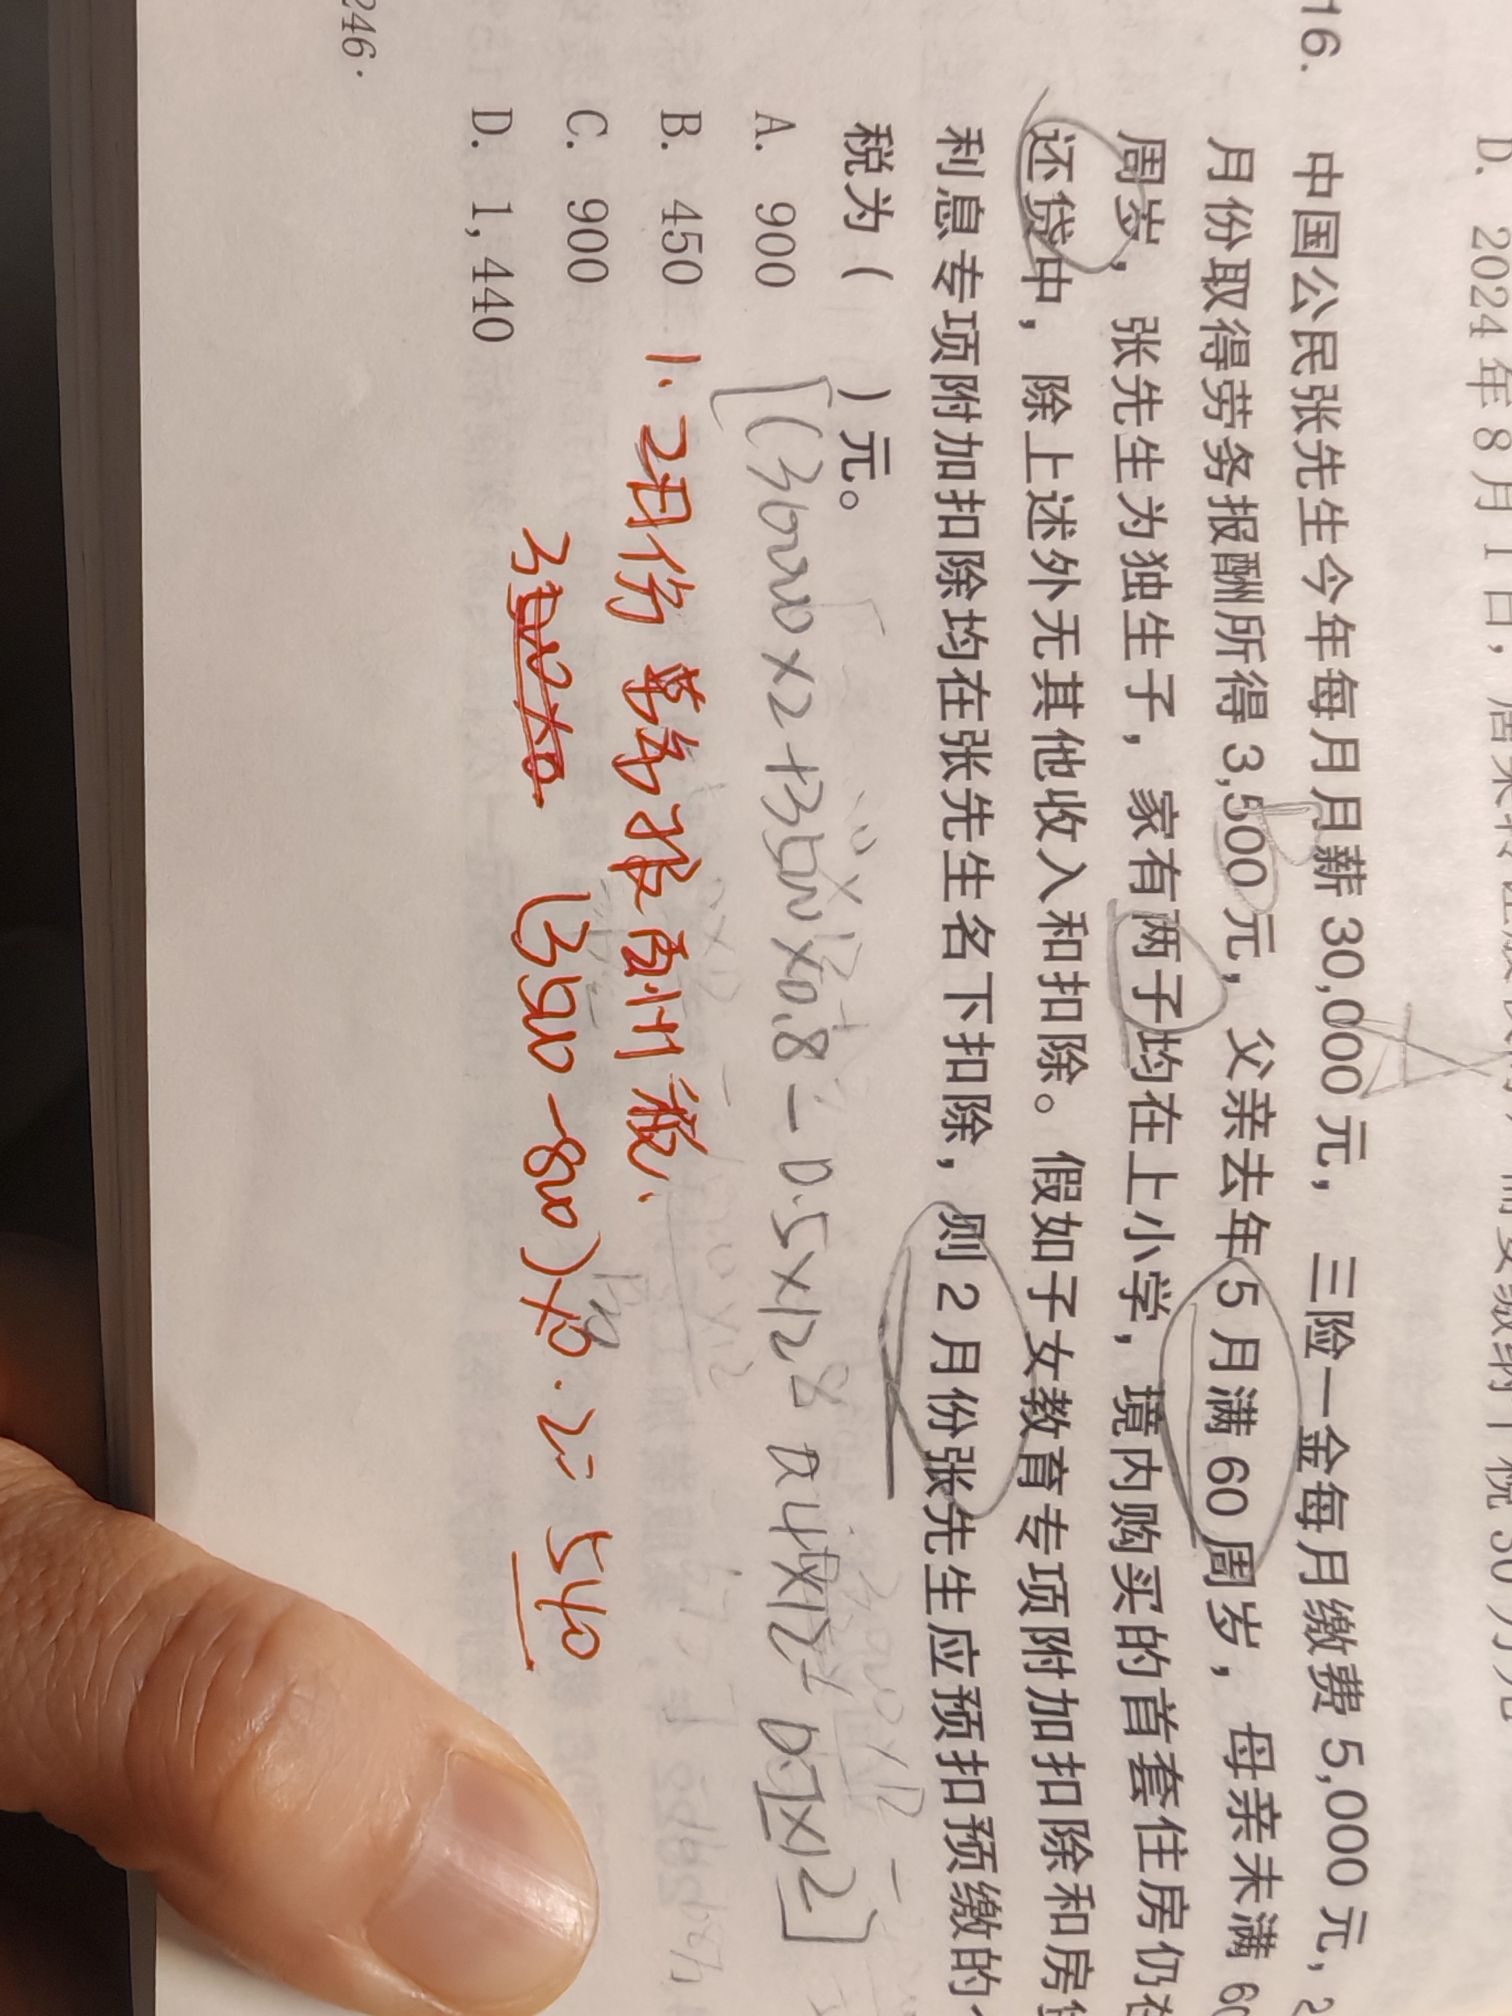 D. 2024年8月1日，居
16. 中国公民张先生今年每月月薪30,000元，三险一金每月缴费5,000元，2
月份取得劳务报酬所得3,500元，父亲去年5月满60周岁，母亲未满60
周岁，张先生为独生子，家有两子均在上小学，境内购买的首套住房仍在
还贷中，除上述外无其他收入和扣除。假如子女教育专项附加扣除和房贷
利息专项附加扣除均在张先生名下扣除，则2月份张先生应预扣预缴的个
税为（ ）元。
A. 900
B. 450
C. 900
D. 1,440
1、2月份 劳务报酬 税、
(3500-800)×0.2= 540
246·